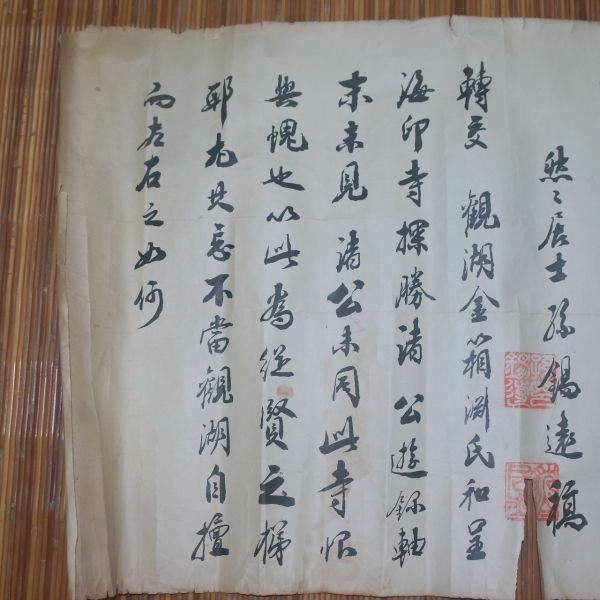 然々居士孫錫遠稿
轉交 觀湖金箱淵氏和呈
海印寺探勝諸 公遊錄軸
末未見 諸公未同此寺恨
與愧也以此為從賢之梯
耶尤其忘不當觀湖自擅
而左右之如何